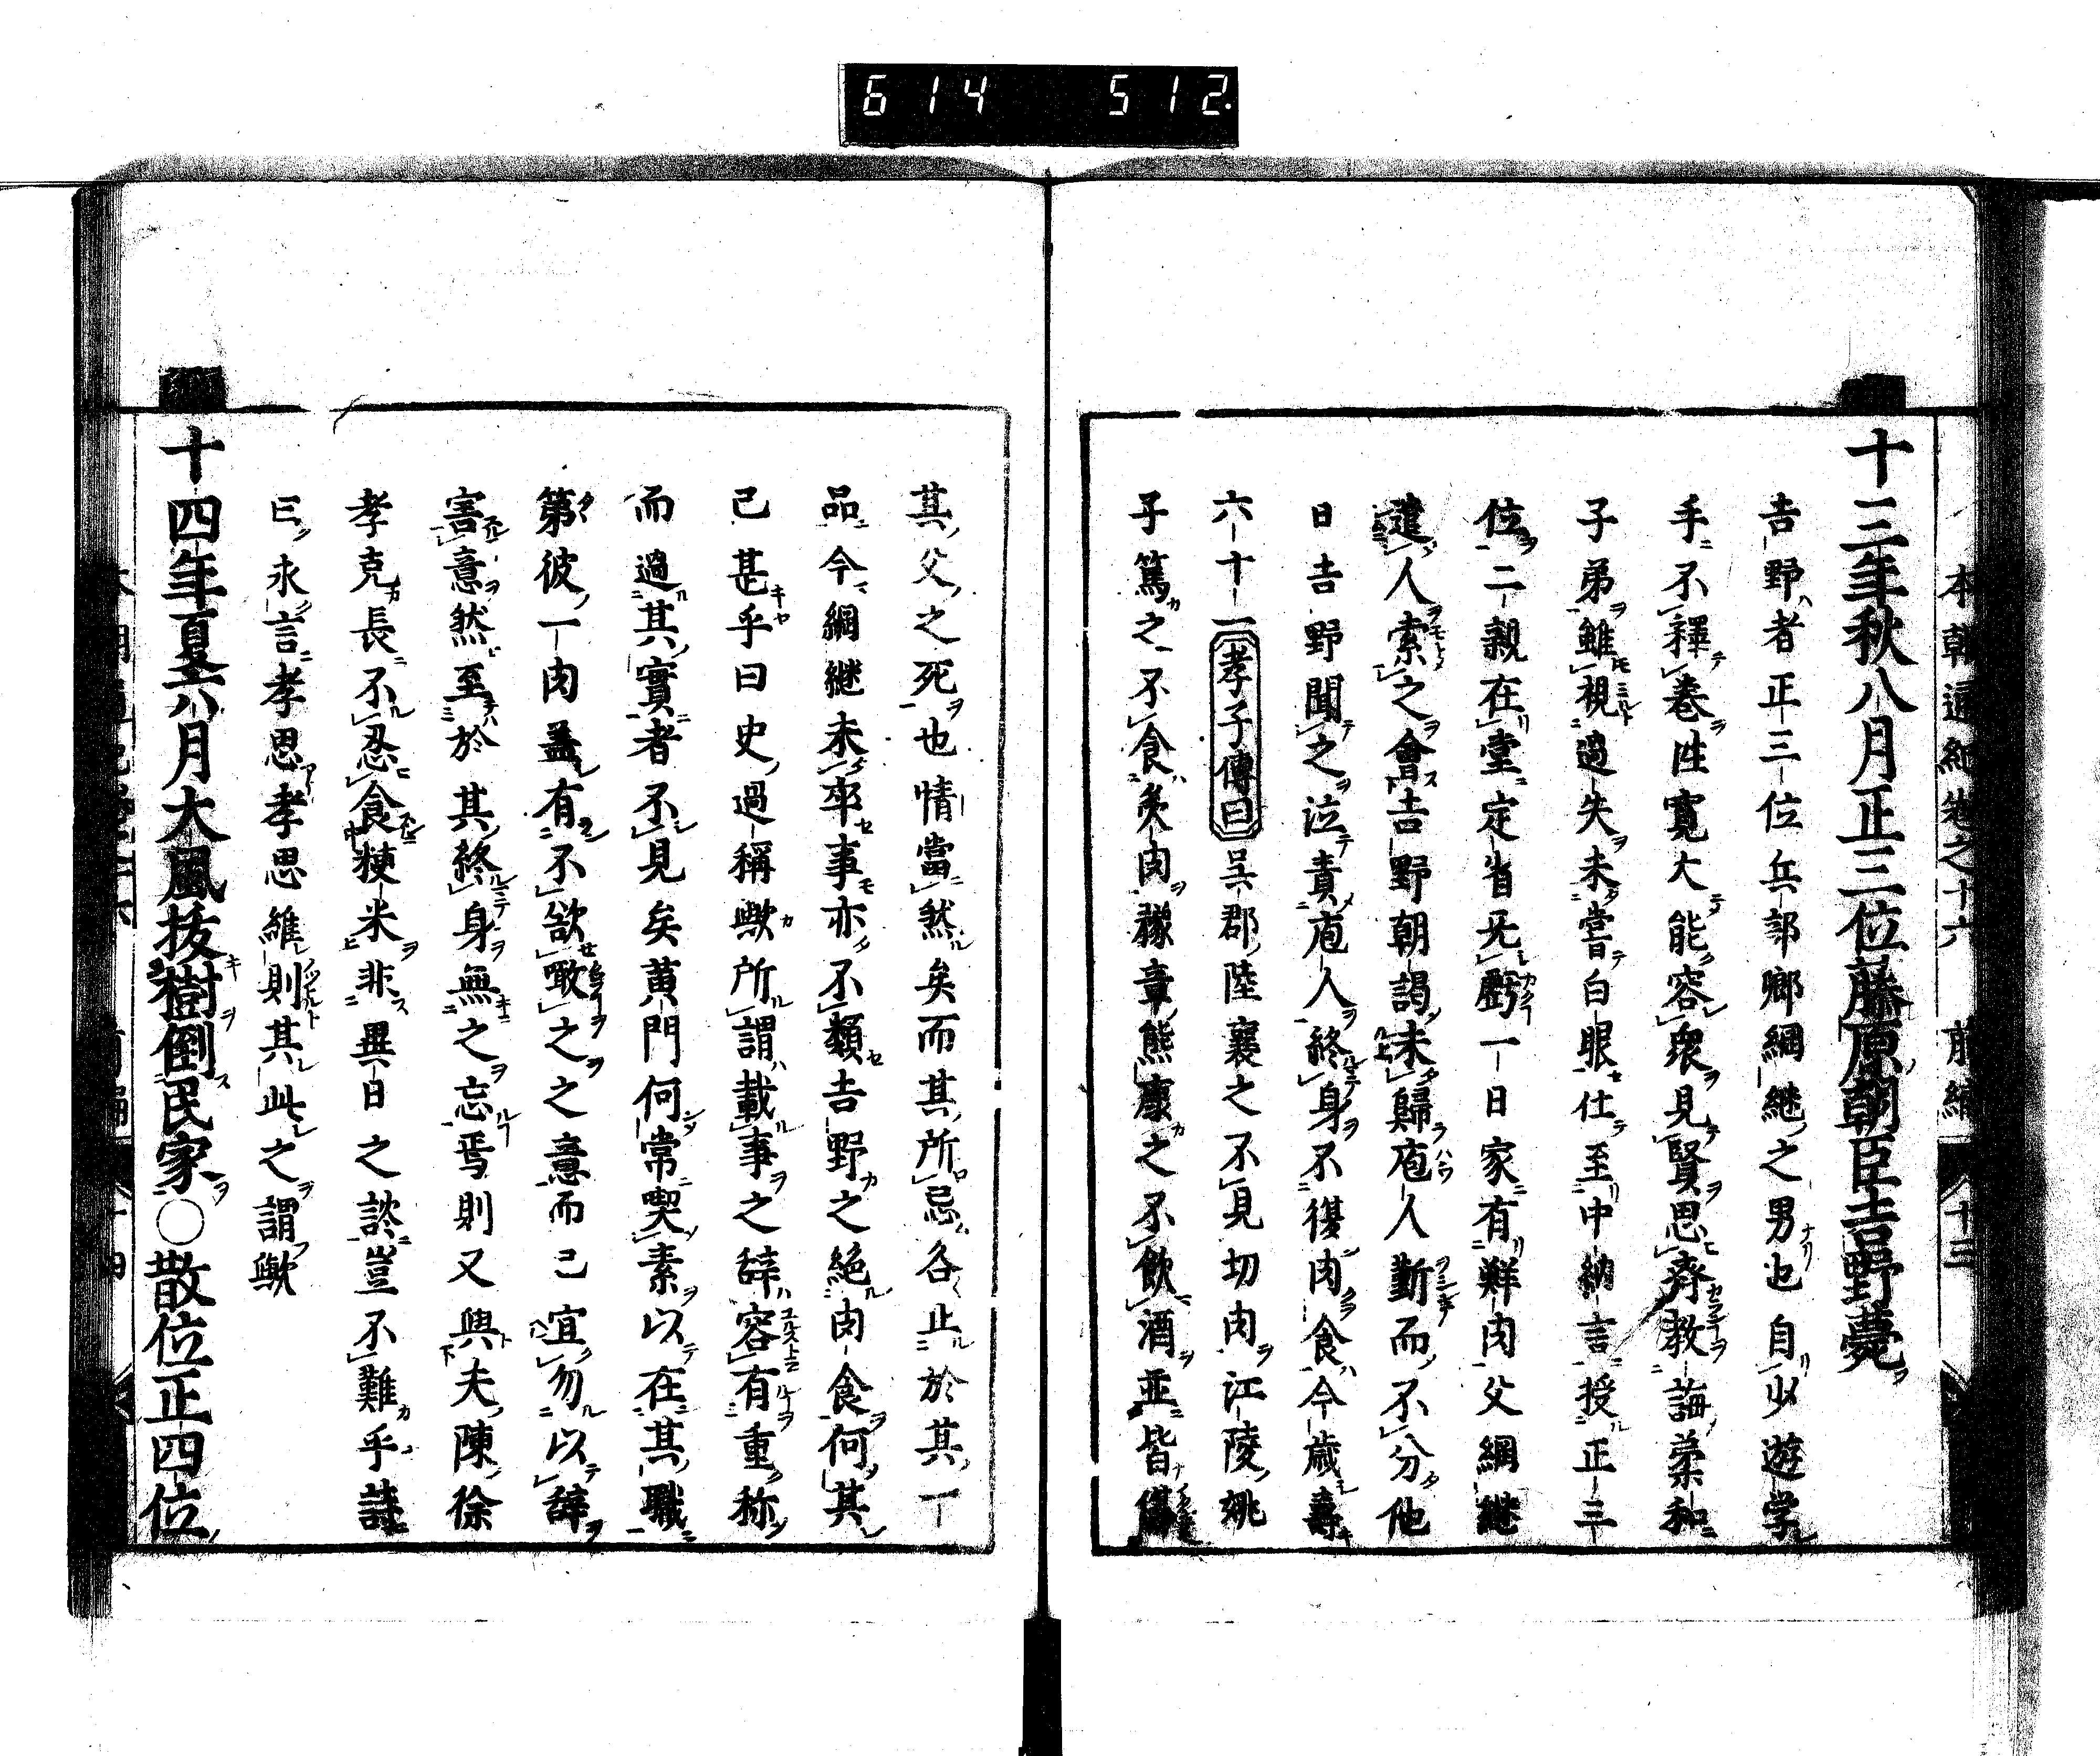 614 512
本朝通紀卷之十六 前編 十三
十三年秋八月正三位藤原朝臣吉野薨
吉野者正三位兵部卿綱継之男也自少遊学
手不釋卷性寛大能容衆見賢思齊教誨柔和
子弟雖視過失未嘗白眼仕至中納言授正三
位二親在堂定省旡虧一日家有鮮肉父綱継
遣人索之會吉野朝謁未歸庖人靳而不分他
日吉野聞之泣責庖人終身不復肉食今歳壽
六十一孝子傳曰呉郡陸襄之不見切肉江陵姚
子篤之不食炙肉豫章熊康之不飲酒並皆傷
其父之死也情當然矣而其所忌各止於其一
品今綱継未卒事亦不類吉野之絶肉食何其
已甚乎曰史過稱歟所謂載事之辭容有重称
而過其實者不見矣黄門何常喫素以在其職
第彼一肉盖有不欲噉之之意而已宜勿以辞
害意然至於其終身無之忘焉則又與夫陳徐
孝克長不忍食粳米非異日之談豈不難乎詩
曰永言孝思孝思維則其此之謂歟
十四年夏六月大風抜樹倒民家○散位正四位